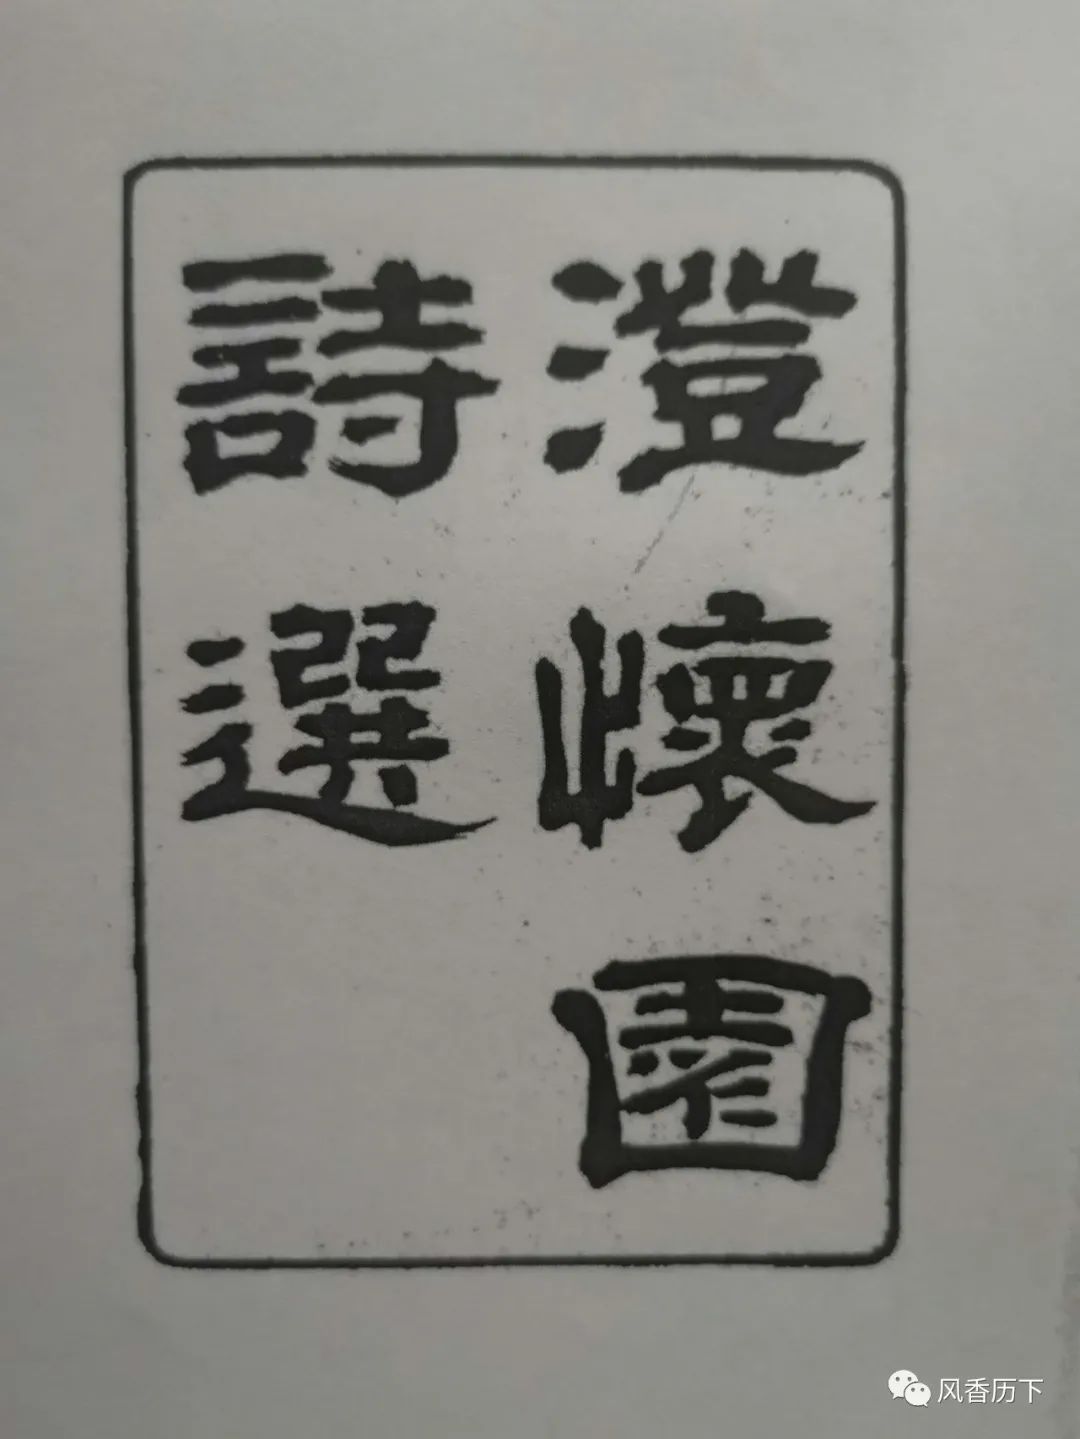 澄懷園
詩選
风香历下